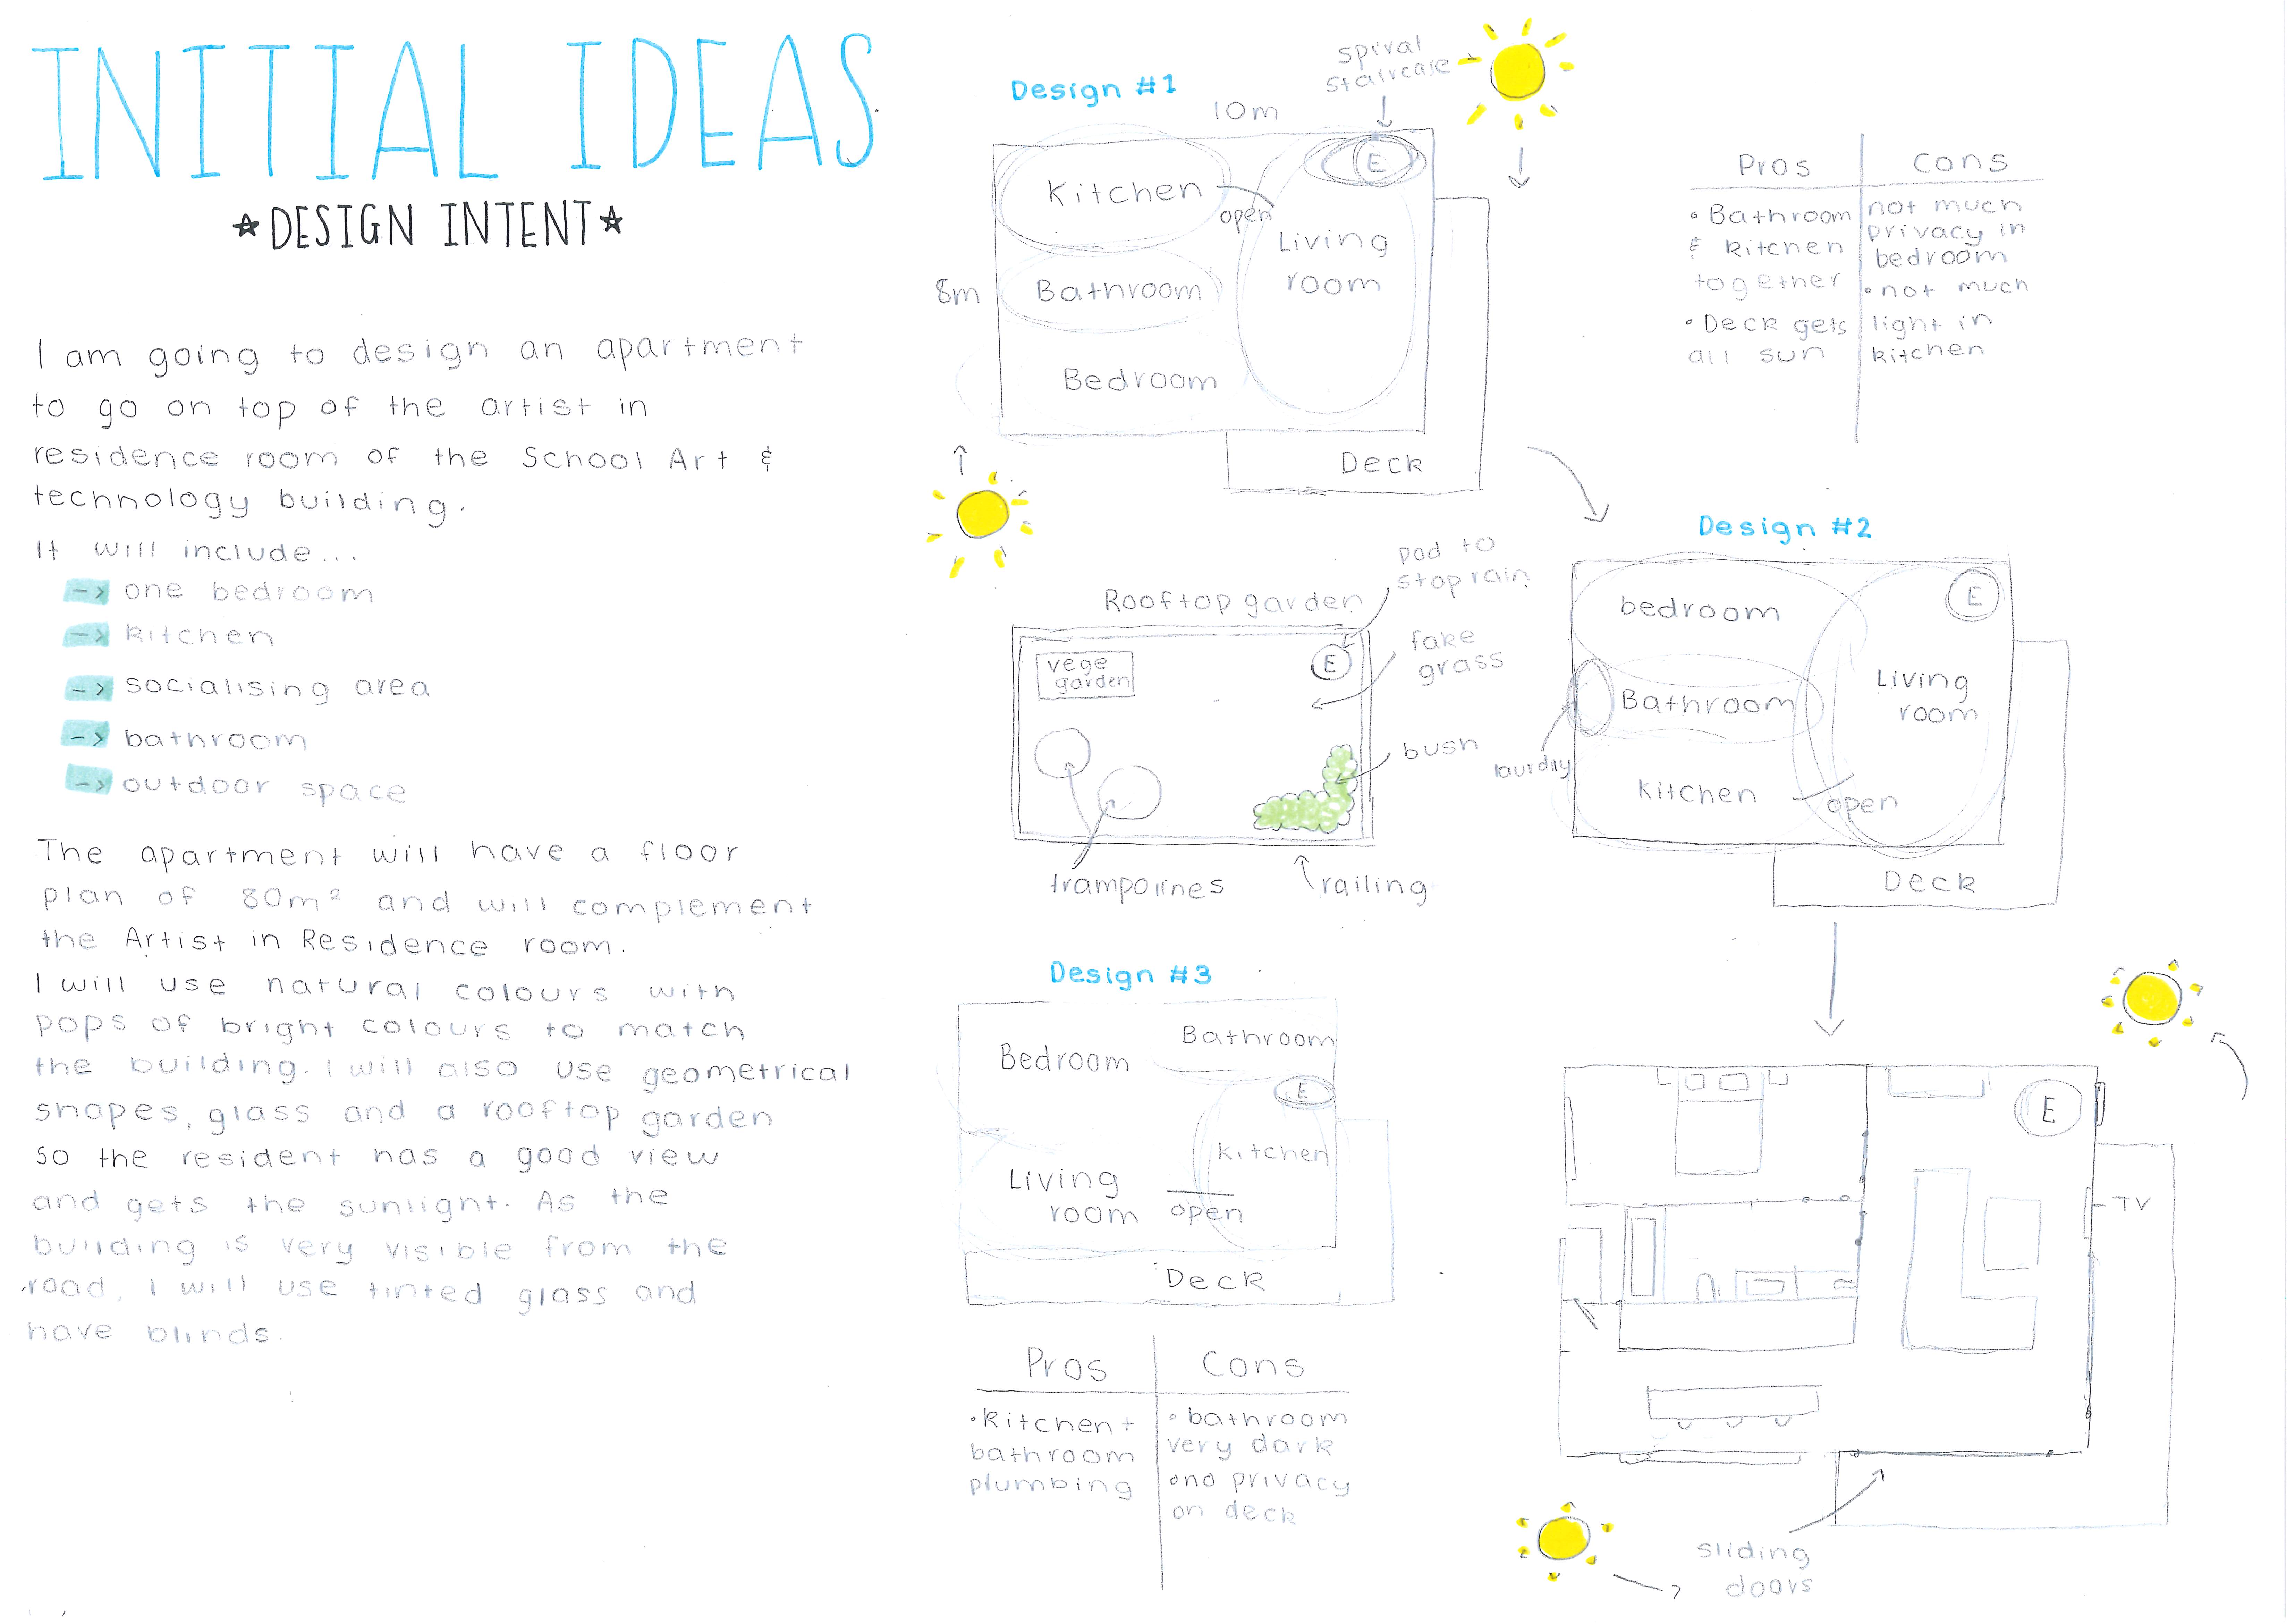 INITIAL IDEAS
★DESIGN INTENT★
I am going to design an apartment
to go on top of the artist in
residence room of the School Art &
technology building.
It will include...
-> one bedroom
-> kitchen
-> socialising area
-> bathroom
-> outdoor space
The apartment will have a floor
plan of 80m² and will complement
the Artist in Residence room.
I will use natural colours with
pops of bright colours to match
the building. I will also use geometrical
shapes, glass and a rooftop garden
so the resident has a good view
and gets the sunlight. As the
building is very visible from the
road, I will use tinted glass and
have blinds.
Design #1
10m
spiral
staircase
8m
Kitchen
open
E
Living
room
Bathroom
Bedroom
Deck
Pros
• Bathroom
& kitchen
together
• Deck gets
all sun
Cons
not much
privacy in
bedroom
• not much
light in
kitchen
Rooftop garden
pod to
stop rain
vege
garden
E
fake
grass
bush
trampolines
railing
Design #2
bedroom
E
Bathroom
Living
room
lourday
Kitchen
open
Deck
Design #3
Bedroom
Bathroom
E
Kitchen
Living
room
open
Deck
Pros
• Kitchen +
bathroom
plumbing
Cons
• bathroom
very dark
• no privacy
on deck
E
TV
sliding
doors